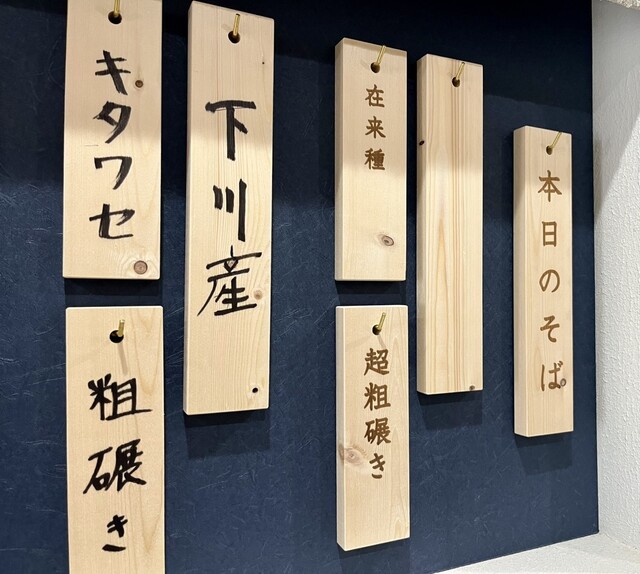 本日のそば
在来種
超粗碾き
下川産
キタワセ
粗碾き